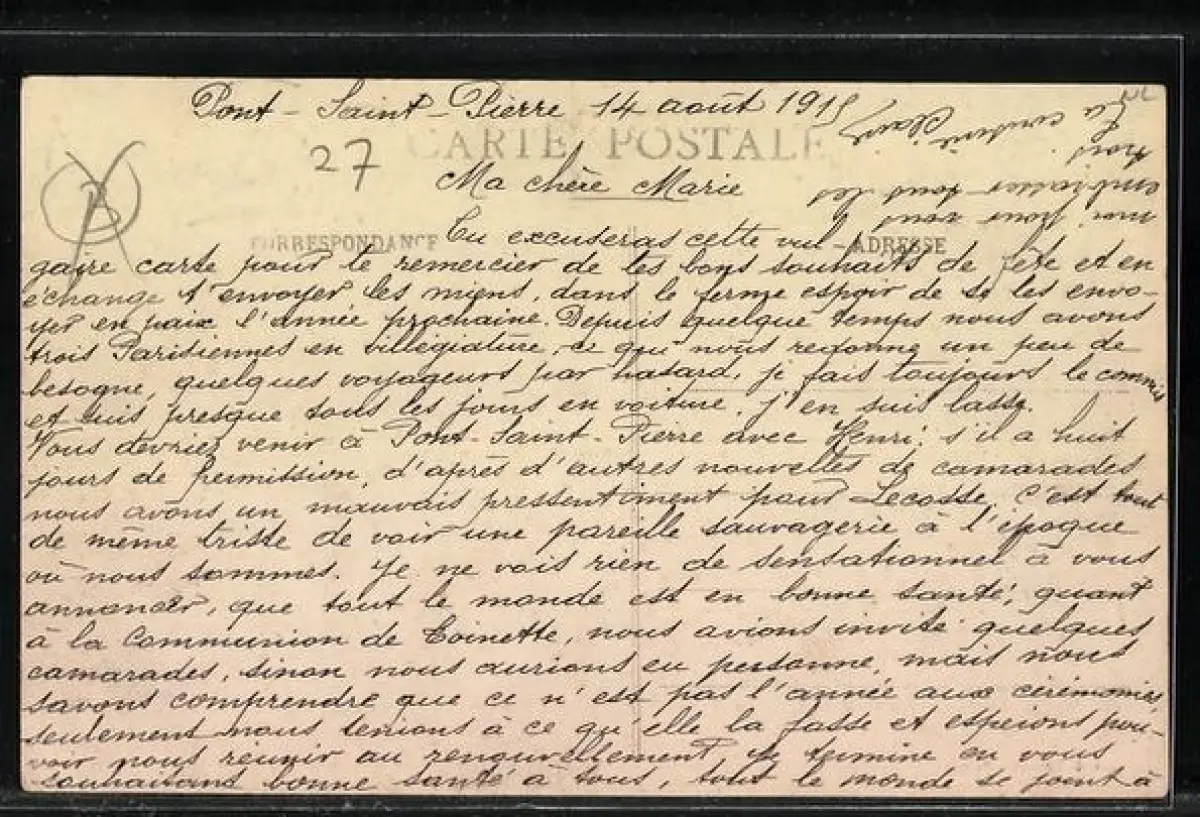 Pont-Saint-Pierre 14 août 1915
CARTE POSTALE
27
B
Ma chère Marie
CORRESPONDANCE
ADRESSE
Tu excuseras cette vul-
gaire carte pour te remercier de tes bons souhaits de fête et en
échange t'envoyer les miens, dans le ferme espoir de se les envo-
yer en paix l'année prochaine. Depuis quelque temps nous avons
trois Parisiennes en villégiature, ce qui nous redonne un peu de
besogne, quelques voyageurs par hasard, je fais toujours le commis
et suis presque tous les jours en voiture, j'en suis lasse.
Vous devriez venir à Pont-Saint-Pierre avec Henri, s'il a huit
jours de permission, d'après d'autres nouvelles de camarades
nous avons un mauvais pressentiment pour Lecosse, c'est tout
de même triste de voir une pareille sauvagerie à l'époque
où nous sommes. Je ne vois rien de sensationnel à vous
annoncer, que tout le monde est en bonne santé; quant
à la Communion de Toinette, nous avions invité quelques
camarades, sinon nous aurions eu personne, mais nous
savons comprendre que ce n'est pas l'année aux cérémonies
seulement nous tenions à ce qu'elle la fasse et espérons pou-
voir nous réunir au renouvellement. Je termine en vous
souhaitant bonne santé à tous, tout le monde se joint à
moi pour vous
embrasser tous les
trois.
Ta cousine Clair